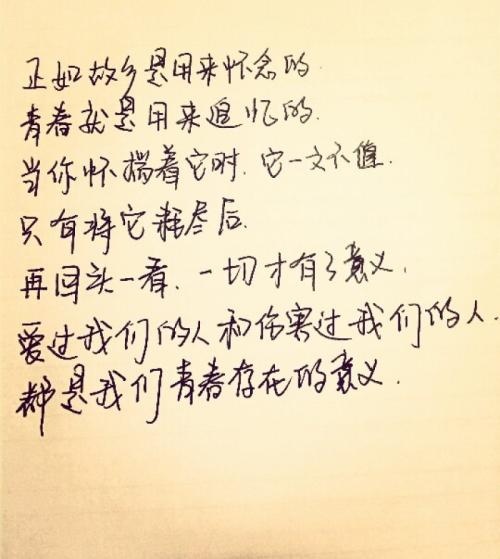 正如故乡是用来怀念的
青春就是用来追忆的.
当你怀揣着它时.它一文不值.
只有将它耗尽后.
再回头一看.一切才有了意义.
爱过我们的人和伤害过我们的人.
都是我们青春存在的意义.